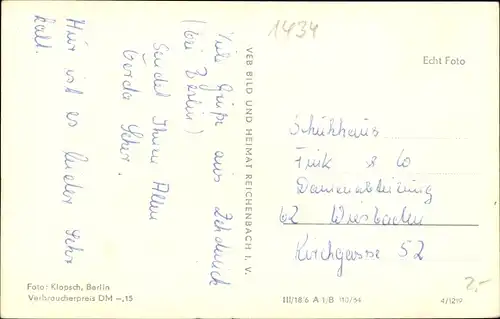 1434
Viele Grüße aus Zehdenick
(bei Berlin)
Sendet Ihnen Allen
Gerda
Hier ist es leider Sehr
kalt.
VEB BILD UND HEIMAT REICHENBACH I. V.
Echt Foto
Schuhhaus
Fink & Co
Damenabteilung
62 Wiesbaden
Kirchgasse 52
Foto: Klapsch, Berlin
Verbraucherpreis DM -,15
III/18/6 A 1/B 110/64
4/1219
2,-